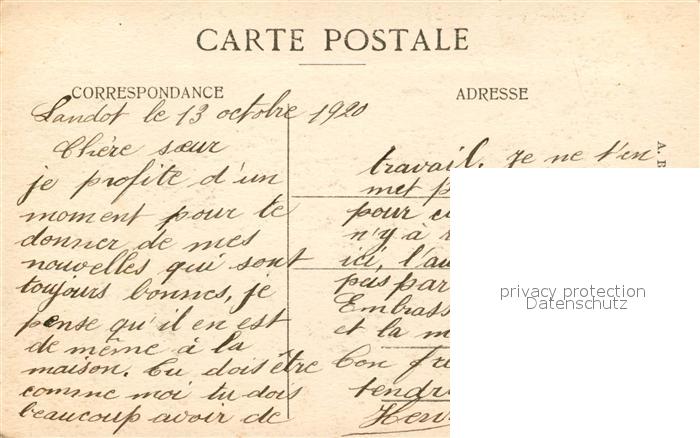 CARTE POSTALE
CORRESPONDANCE
ADRESSE
Landot le 13 octobre 1920
Chère sœur
je profite d'un
moment pour te
donner de mes
nouvelles qui sont
toujours bonnes, je
pense qu'il en est
de même à la
maison. Tu dois être
comme moi tu dois
beaucoup avoir de
travail. je ne t'en
met p
pour c
n'y à
ici, l'au
pas par
Embrass
et la m
Ton fr
tendre
Hen
privacy protection
Datenschutz